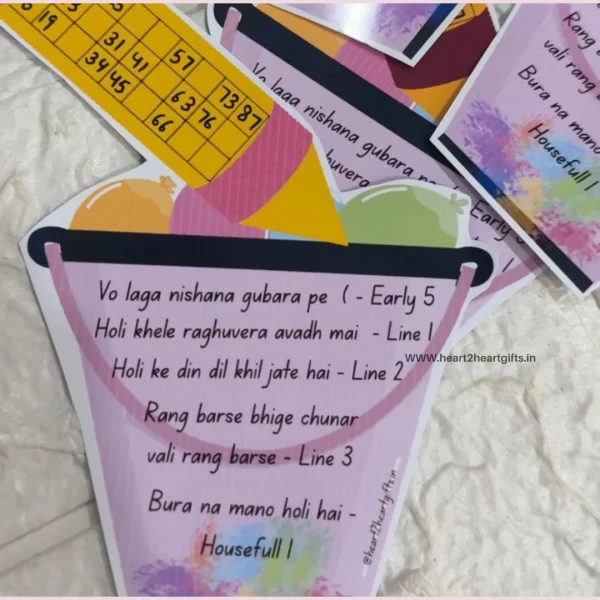 19
31 41 57
34 45 63 73 87
66 76
Vo laga nishana gubara pe ( - Early 5
Holi khele raghuvera avadh mai - Line 1
Holi ke din dil khil jate hai - Line 2
Rang barse bhige chunar
vali rang barse - Line 3
Bura na mano holi hai -
Housefull 1
@heart2heartgifts.in
www.heart2heartgifts.in
Vo laga nishana gubara
huvera
Early
Rang
vali rang
Bura na mano
Housefull 1